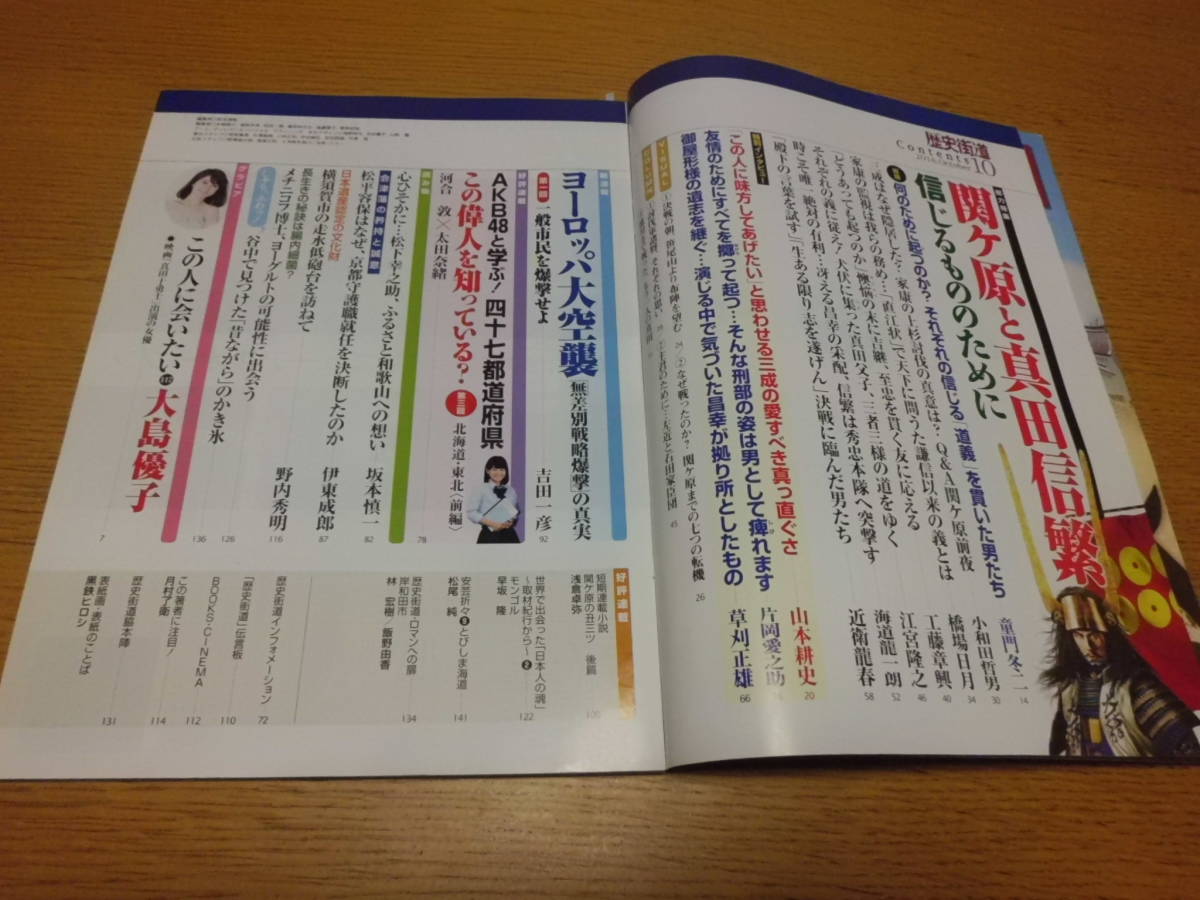 歴史街道
Contents 10
関ケ原と真田信繁
信じるもののために
何のために起つのか? それぞれの信じる「道義」を貫いた男たち
童門冬二 14
三成はなぜ隠居した? 家康の上杉討伐の真意は? Q&A関ケ原前夜
小和田哲男 30
家康の監視は我らの務め…「直江状」で天下に問うた謙信以来の義とは
橋場日月 34
「どうあっても起つのか」懊悩の末に吉継、至忠を貫く友に応える
工藤章興 40
それぞれの義に従え! 犬伏に集った真田父子、三者三様の道をゆく
江宮隆之 46
時こそ唯一絶対の有利…冴える昌幸の采配、信繁は秀忠本隊へ突撃す
海道龍一朗 52
「殿下の言葉を試す」「生ある限り志を遂げん」決戦に臨んだ男たち
近衛龍春 58
特別インタビュー
「この人に味方してあげたい」と思わせる三成の愛すべき真っ直ぐさ
山本耕史 20
友情のためにすべてを擲って起つ…そんな刑部の姿は男として痺れます
片岡愛之助
御屋形様の遺志を継ぐ…演じる中で気づいた昌幸が拠り所としたもの
草刈正雄 66
決戦の朝、笹尾山より布陣を望む 24
②なぜ戦ったのか? 関ケ原までの七つの転機 26
ヨーロッパ大空襲 「無差別戦略爆撃」の真実
第一部 一般市民を爆撃せよ
吉田一彦 92
好評連載
AKB48と学ぶ! 四十七都道府県
この偉人を知っている? 第三回 北海道・東北〈前編〉
河合 敦×太田奈緒
78
読み物
心ひそかに…松下幸之助、ふるさと和歌山への想い
坂本慎一 82
会津藩の矜持と誠意
松平容保はなぜ、京都守護職就任を決断したのか
伊東成郎 87
日本遺産認定の文化財
横須賀市の走水低砲台を訪ねて
長生きの秘訣は腸内細菌?
メチニコフ博士、ヨーグルトの可能性に出会う
野内秀明 116
128
谷中で見つけた「昔ながら」のかき氷
136
グラビア
この人に会いたい 大島優子
●映画『真田十勇士』出演の女優
7
好評連載
短期連載小説
関ケ原の丑三ツ 後篇
浅倉卓弥
世界で出会った「日本人の魂」
〜取材紀行から〜 ❷
モンゴル
早坂 隆 122
安芸折々❾とびしま海道
松尾 純 141
歴史街道・ロマンへの扉
岸和田市
林 宏樹/飯野由香 134
歴史街道インフォメーション 72
「歴史街道」伝言板 110
BOOKS・CINEMA 112
この著者に注目!
月村了衛 114
歴史街道脇本陣
表紙画・表紙のことば
黒鉄ヒロシ 131